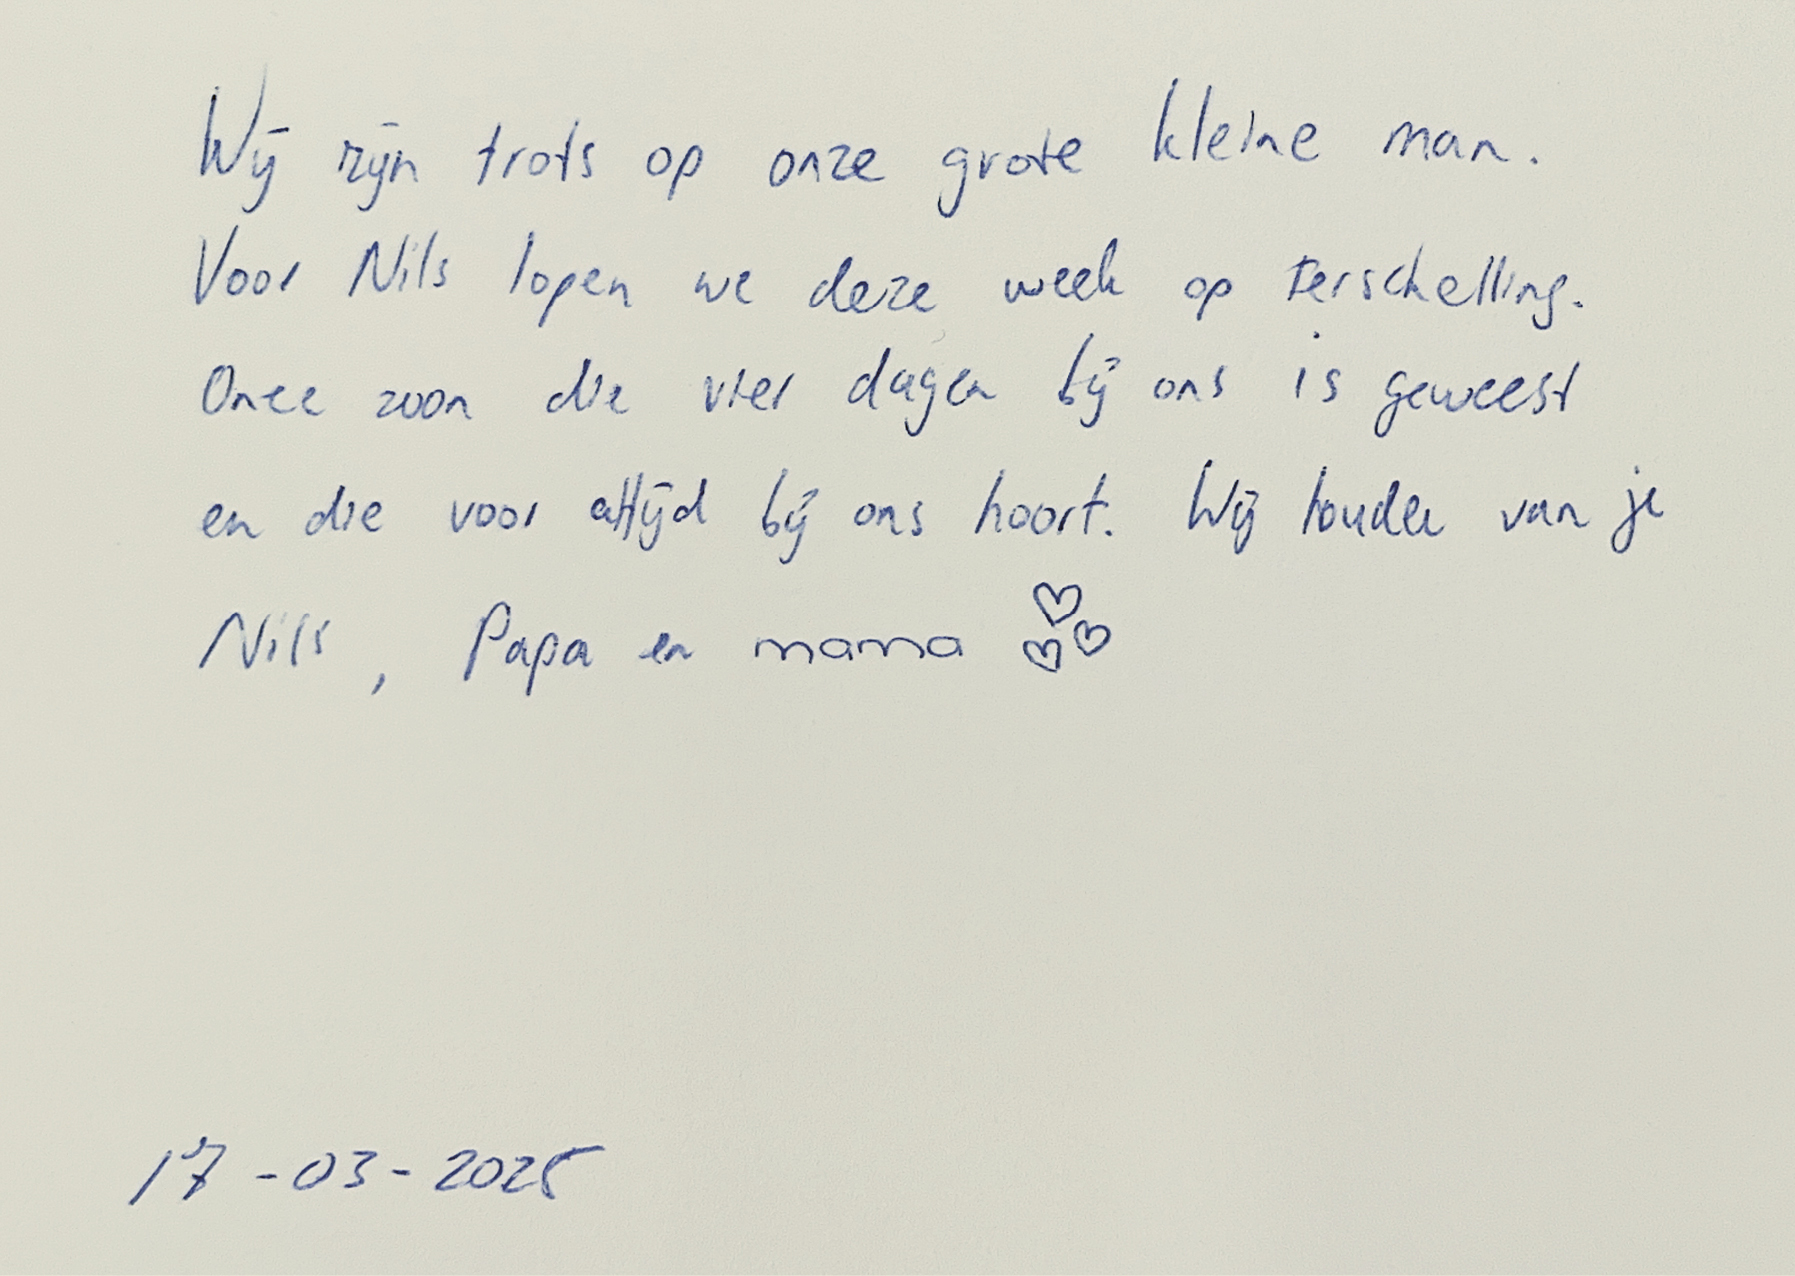 Wij zijn trots op onze grote kleine man.
Voor Nils lopen we deze week op Terschelling.
Onze zoon die vier dagen bij ons is geweest
en die voor altijd bij ons hoort. Wij houden van je
Nils, Papa en mama ♡♡♡
17-03-2025